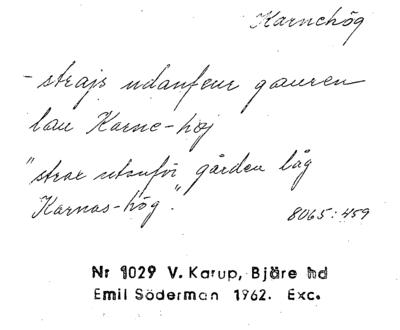 Karnehög
- strajs udanfeur gauren
lau Karne-höj
"strax utanför gården låg
Karnas-hög".
8065:459
Nr 1029 V. Karup, Bjäre hd
Emil Söderman 1962. Exc.